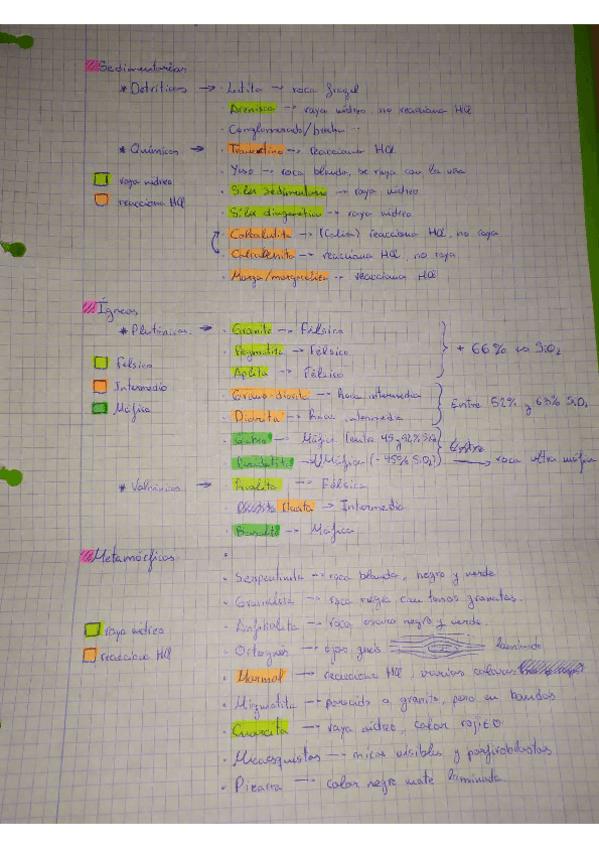 Sedimentarias
* Detríticas → · Lutita → roca frágil
· Arenisca → raya vidrio, no reacciona HCl
· Conglomerado/brecha
* Químicas → · Travertino → reacciona HCl
· Yeso → roca blanda, se raya con la uña
raya vidrio
· Sílex sedimentario → raya vidrio
reacciona HCl
· Sílex diagenético → raya vidrio
· Calcilutita → (Caliza) reacciona HCl, no raya
· Calcarenita → reacciona HCl, no raya
· Marga/margocaliza → reacciona HCl
Ígneas
* Plutónicas → · Granito → Félsica
· Pegmatita → Félsica
+ 66% en SiO2
· Aplita → Félsica
Félsica
Intermedio
Máfica
· Grano-diorita → Roca intermedia
· Diorita → Roca intermedia
Entre 52% y 63% SiO2
· Gabro → Máfica (entre 45 y 52% SiO2)
· Peridotita → UMáfica (-45% SiO2) → roca ultra máfica
* Volcánicas → · Riolita → Félsica
· Dacita → Intermedia
· Basalto → Máfica
Metamórficas
· Serpentinita → roca blanda, negro y verde
· Granulita → roca negra con tonos granates.
raya vidrio
· Anfibolita → roca oscura negro y verde.
reacciona HCl
· Ortogneis → ojos gneis laminado
· Marmol → reacciona HCl, varios colores
· Migmatita → parecido a granito, pero en bandas
· Cuarcita → raya vidrio, color rojizo
· Micaesquistos → micas visibles y porfiroblastos
· Pizarra → color negro mate laminada